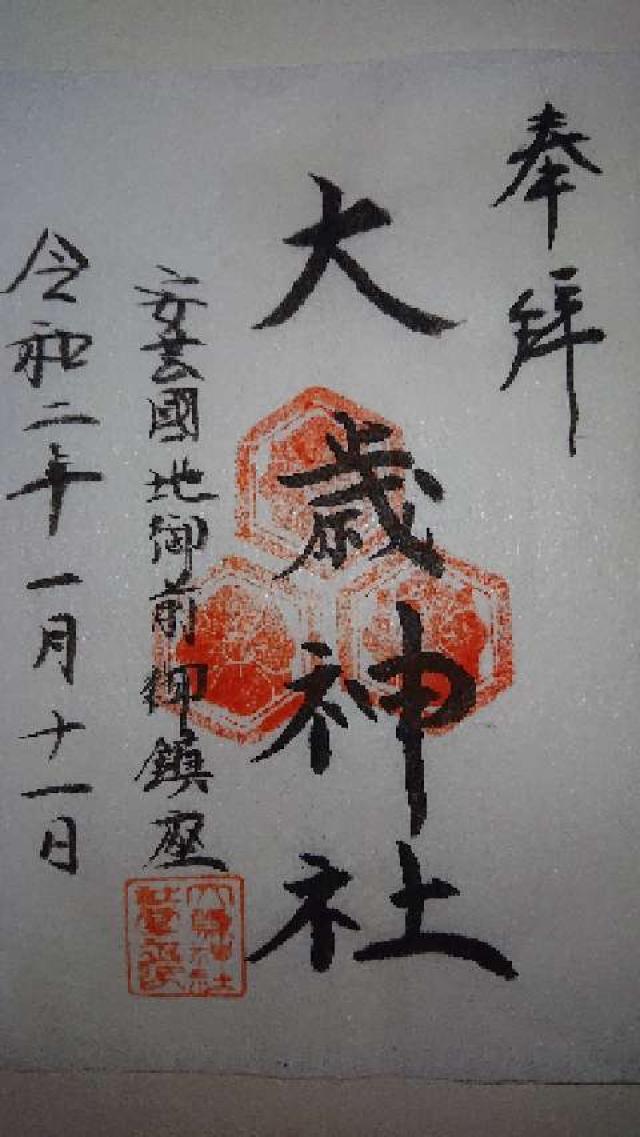 奉拝
大歳神社
安芸國地御前御鎮座
令和二年一月十一日